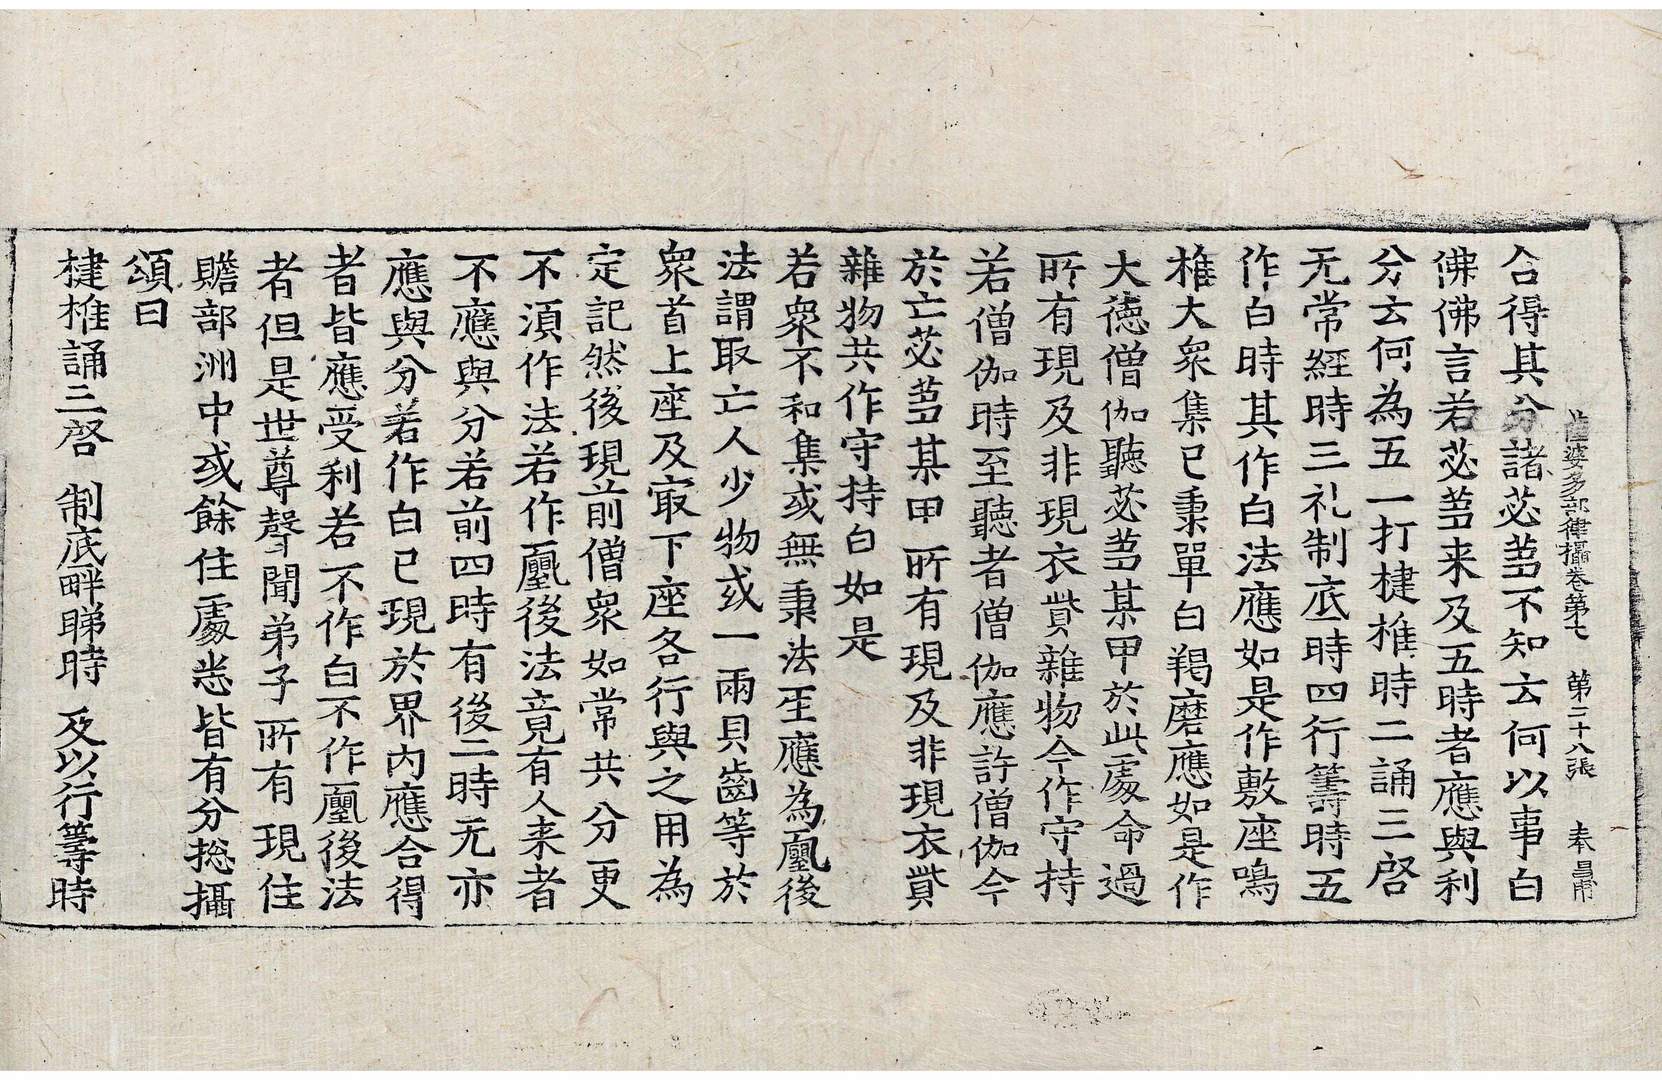 薩婆多部律攝卷第七　第二十八張　奉
合得其分諸苾蒭不知云何以事白
佛佛言若苾蒭来及五時者應與利
分云何為五一打揵椎時二誦三啓
无常經時三礼制底時四行籌時五
作白時其作白法應如是作敷座鳴
椎大衆集已秉單白羯磨應如是作
大徳僧伽聽苾蒭某甲於此處命過
所有現及非現衣貲雜物今作守持
若僧伽時至聽者僧伽應許僧伽今
於亡苾蒭某甲所有現及非現衣貲
雜物共作守持白如是
若衆不和集或無秉法至應為𠙖後
法謂取亡人少物或一兩貝齒等於
衆首上座及㝡下座各行與之用為
定記然後現前僧衆如常共分更
不湏作法若作𠙖後法竟有人来者
不應與分若前四時有後二時无亦
應與分若作白已現於界内應合得
者皆應受利若不作白不作𠙖後法
者但是世尊聲聞弟子所有現住
贍部洲中或餘住處悉皆有分捴攝
頌曰
揵椎誦三啓　制底畔睇時　及以行籌時